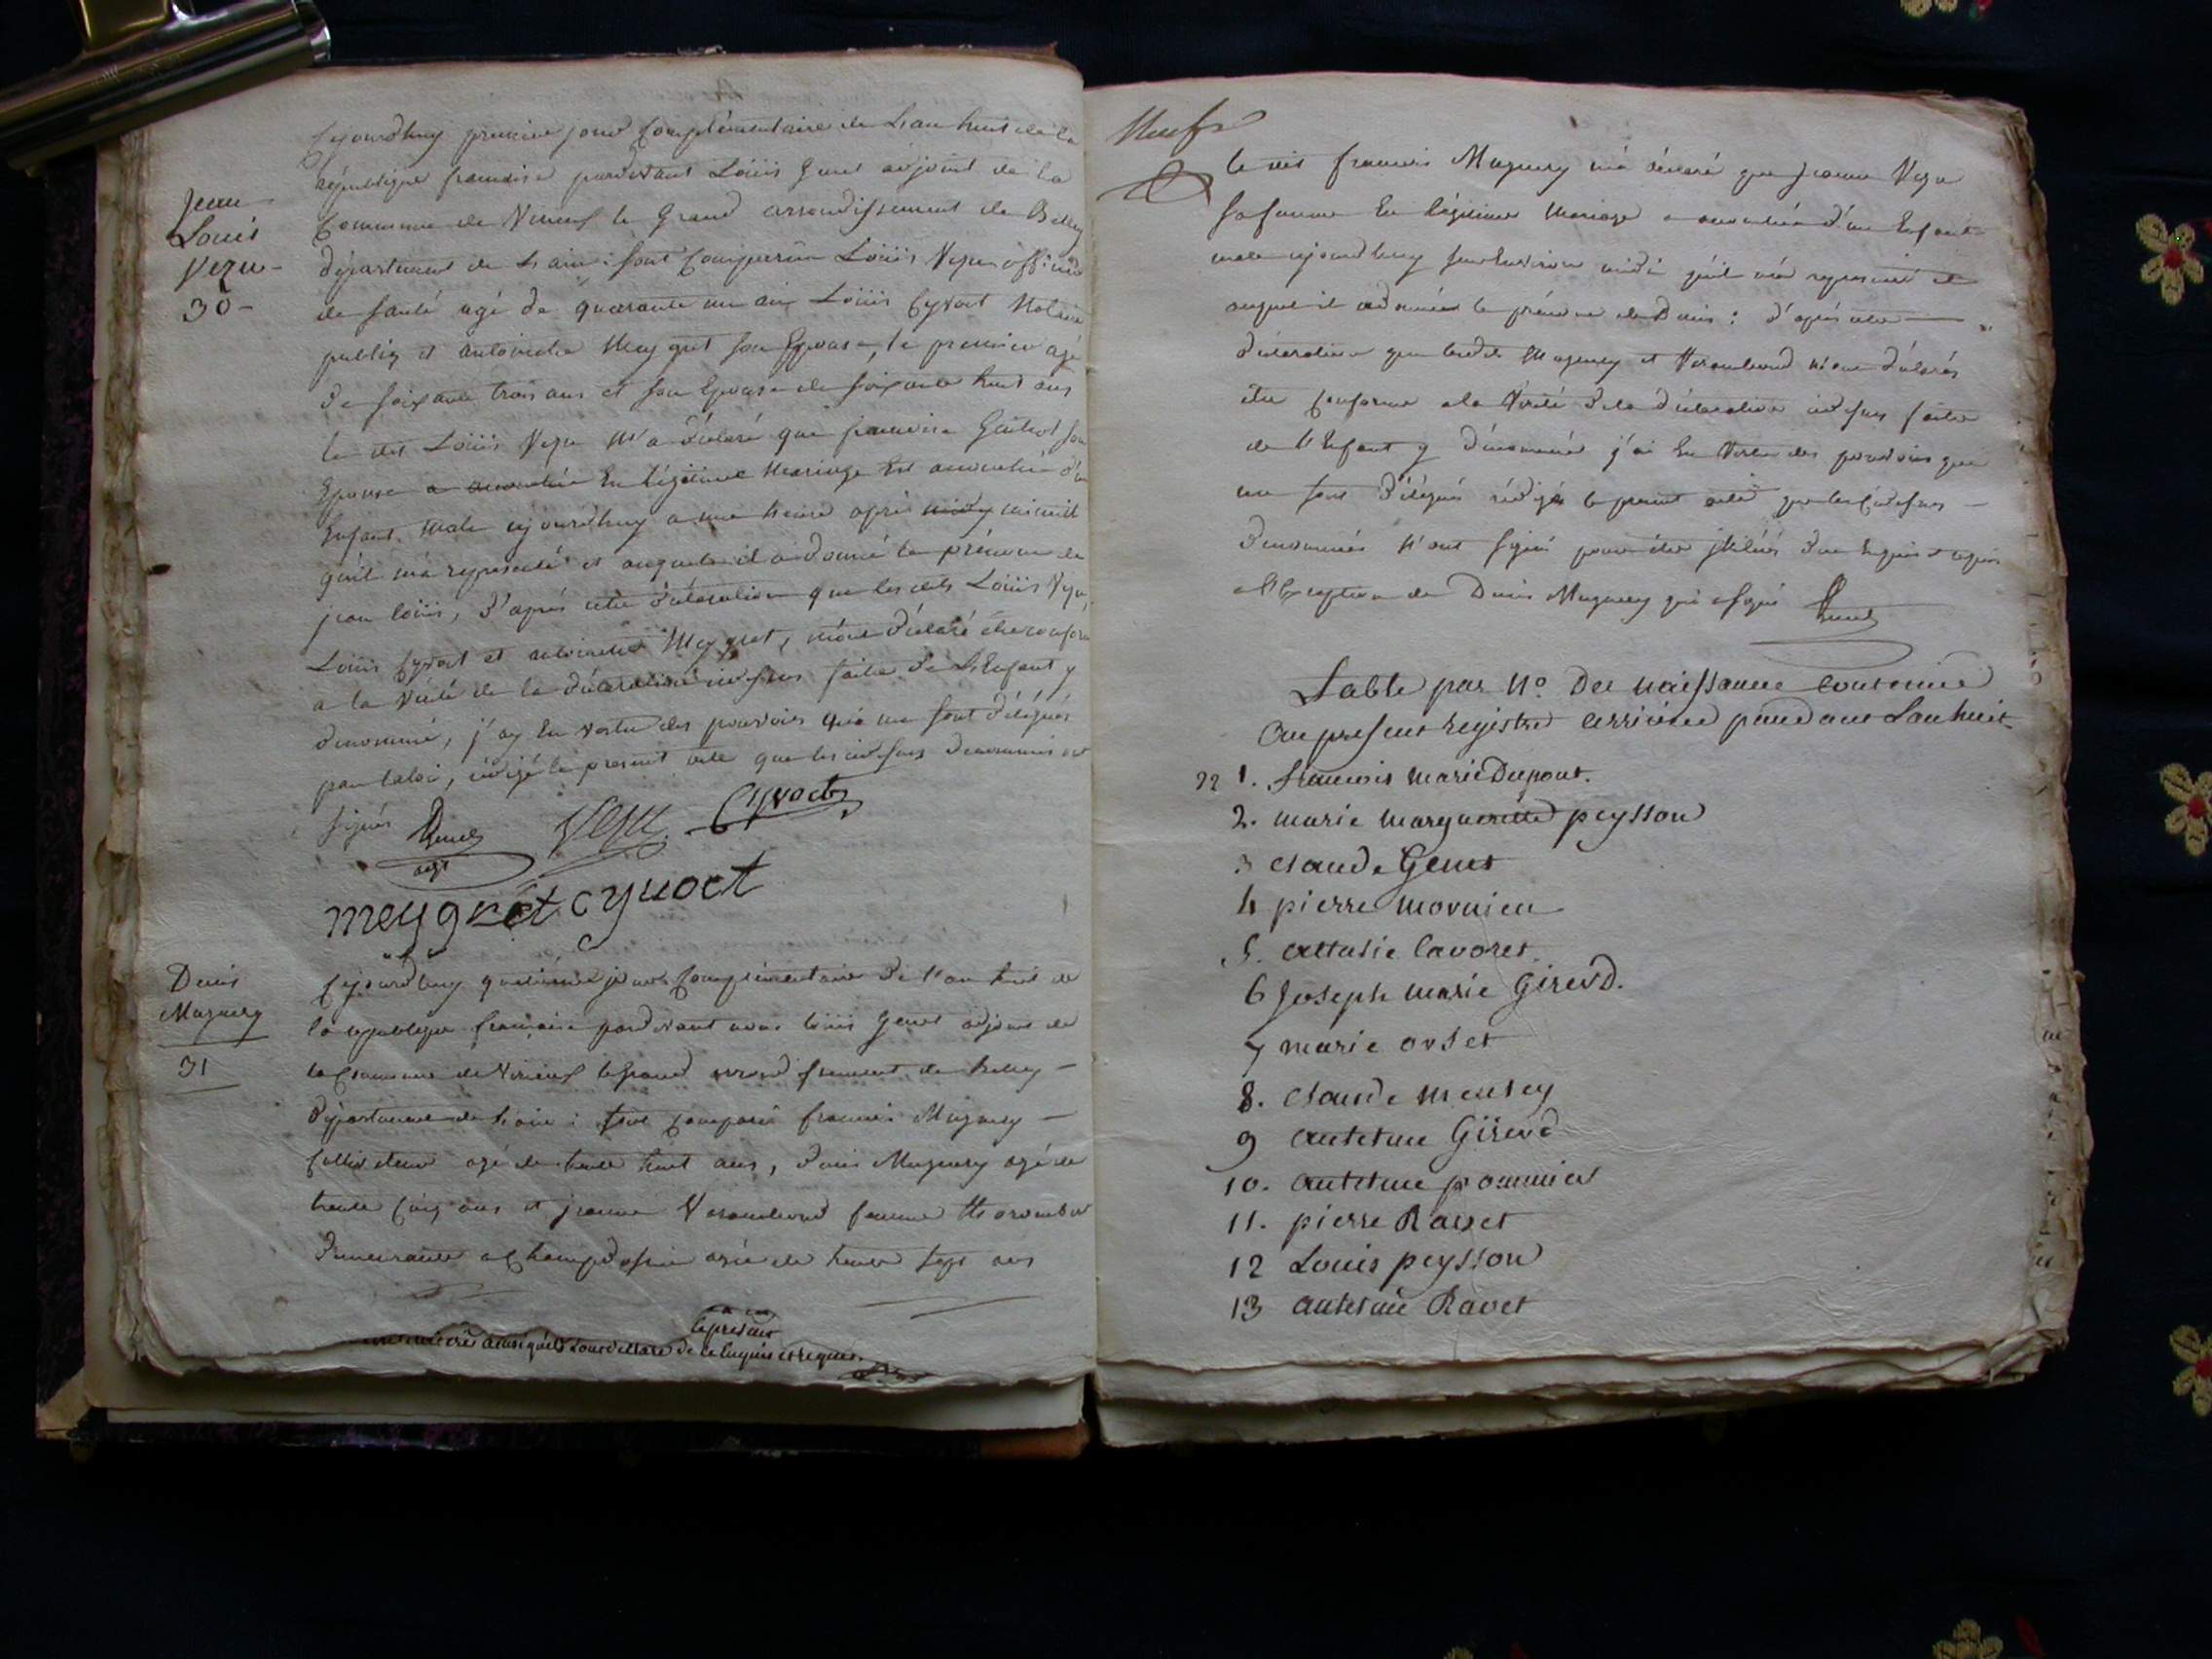 Cejourdhuy premier jour Complémentaire de L'an huit de la
république francaise pardevant Loüis Genet adjoint de la
Commune de Virieux le Grand arrondissement de Belley
département de L'ain : sont Comparus Loüis Vezu officier
de santé agé de quarante un ans Loüis Cyvoct Notaire
public et antoinette Meygret son Epouse, le premier agé
de soixante trois ans et son Epouse de soixante huit ans
le dit Loüis Vezu M'a déclaré que
Epouse a accouchée En légitime Mariage Est accouchée d'un
Enfant male cejourdhuy a une heure après midy minuit
qu'il m'a representé et auquel il a donné le prénom de
jean loüis, d'après cette déclaration que les dits Loüis Vezu,
Loüis Cyvoct et antoinette Meygret, m'ont déclaré etre conforme
a la Vérité de la déclaration cidessus faite de L'Enfant y
denommé, j'ay En vertu des pouvoirs qui me sont délégués
par la loi, rédigé le present acte que les cidessus denommés ont
signés Genet Vezu Cyvoct
adjt
meygret cyvoct
Jean
Louis
Vezu
30
Denis
Muguery
31
Cejourdhuy quatrieme jour Complémentaire de l'an huit de
la republique francaise pardevant nous loüis Genet adjoint de
la Commune de Virieux le Grand arrondissement de Belley
département de l'ain : sont Comparus francois Muguery
Cultivateur agé de trente huit ans, denis Muguery agé de
trente Cinq ans et jeanne femme
demeurante a agée de trente sept ans
le present
ainsi quil
Neuf
le dit francois Muguery m'a déclaré que jeanne Vezu
sa femme En légitime Mariage a accouchée d'un Enfant
male cejourdhuy sur Environ midi qu'il m'a representé et
auquel il a donné le prénom de Denis : d'après cette
déclaration que lesdits Muguery et m'ont déclarés
etre Conforme a la Vérité de la déclaration cidessus faite
de l'Enfant y dénommé j'ai En Vertu des pouvoirs qui
me sont délégués rédigé le present acte que les Cidessus
denommés n'ont signé pour etre illitérés de ce Enquis et requis
a l'Exception de Denis Muguery qui a signé Genet
Table par No. Des naissance contenue
au present registre arrivées pendant Lan huit
22 1. francois marie Dupont.
2. marie margueritte peysson
3 Claude Genet
4 pierre mornieu
5. attasie lavoret.
6 Joseph marie Girerd.
7 marie orset
8. Claude meurey
9 antetme Girerd
10. antetme pommier
11. pierre Ravet
12 Louis peysson
13 antetme Ravet